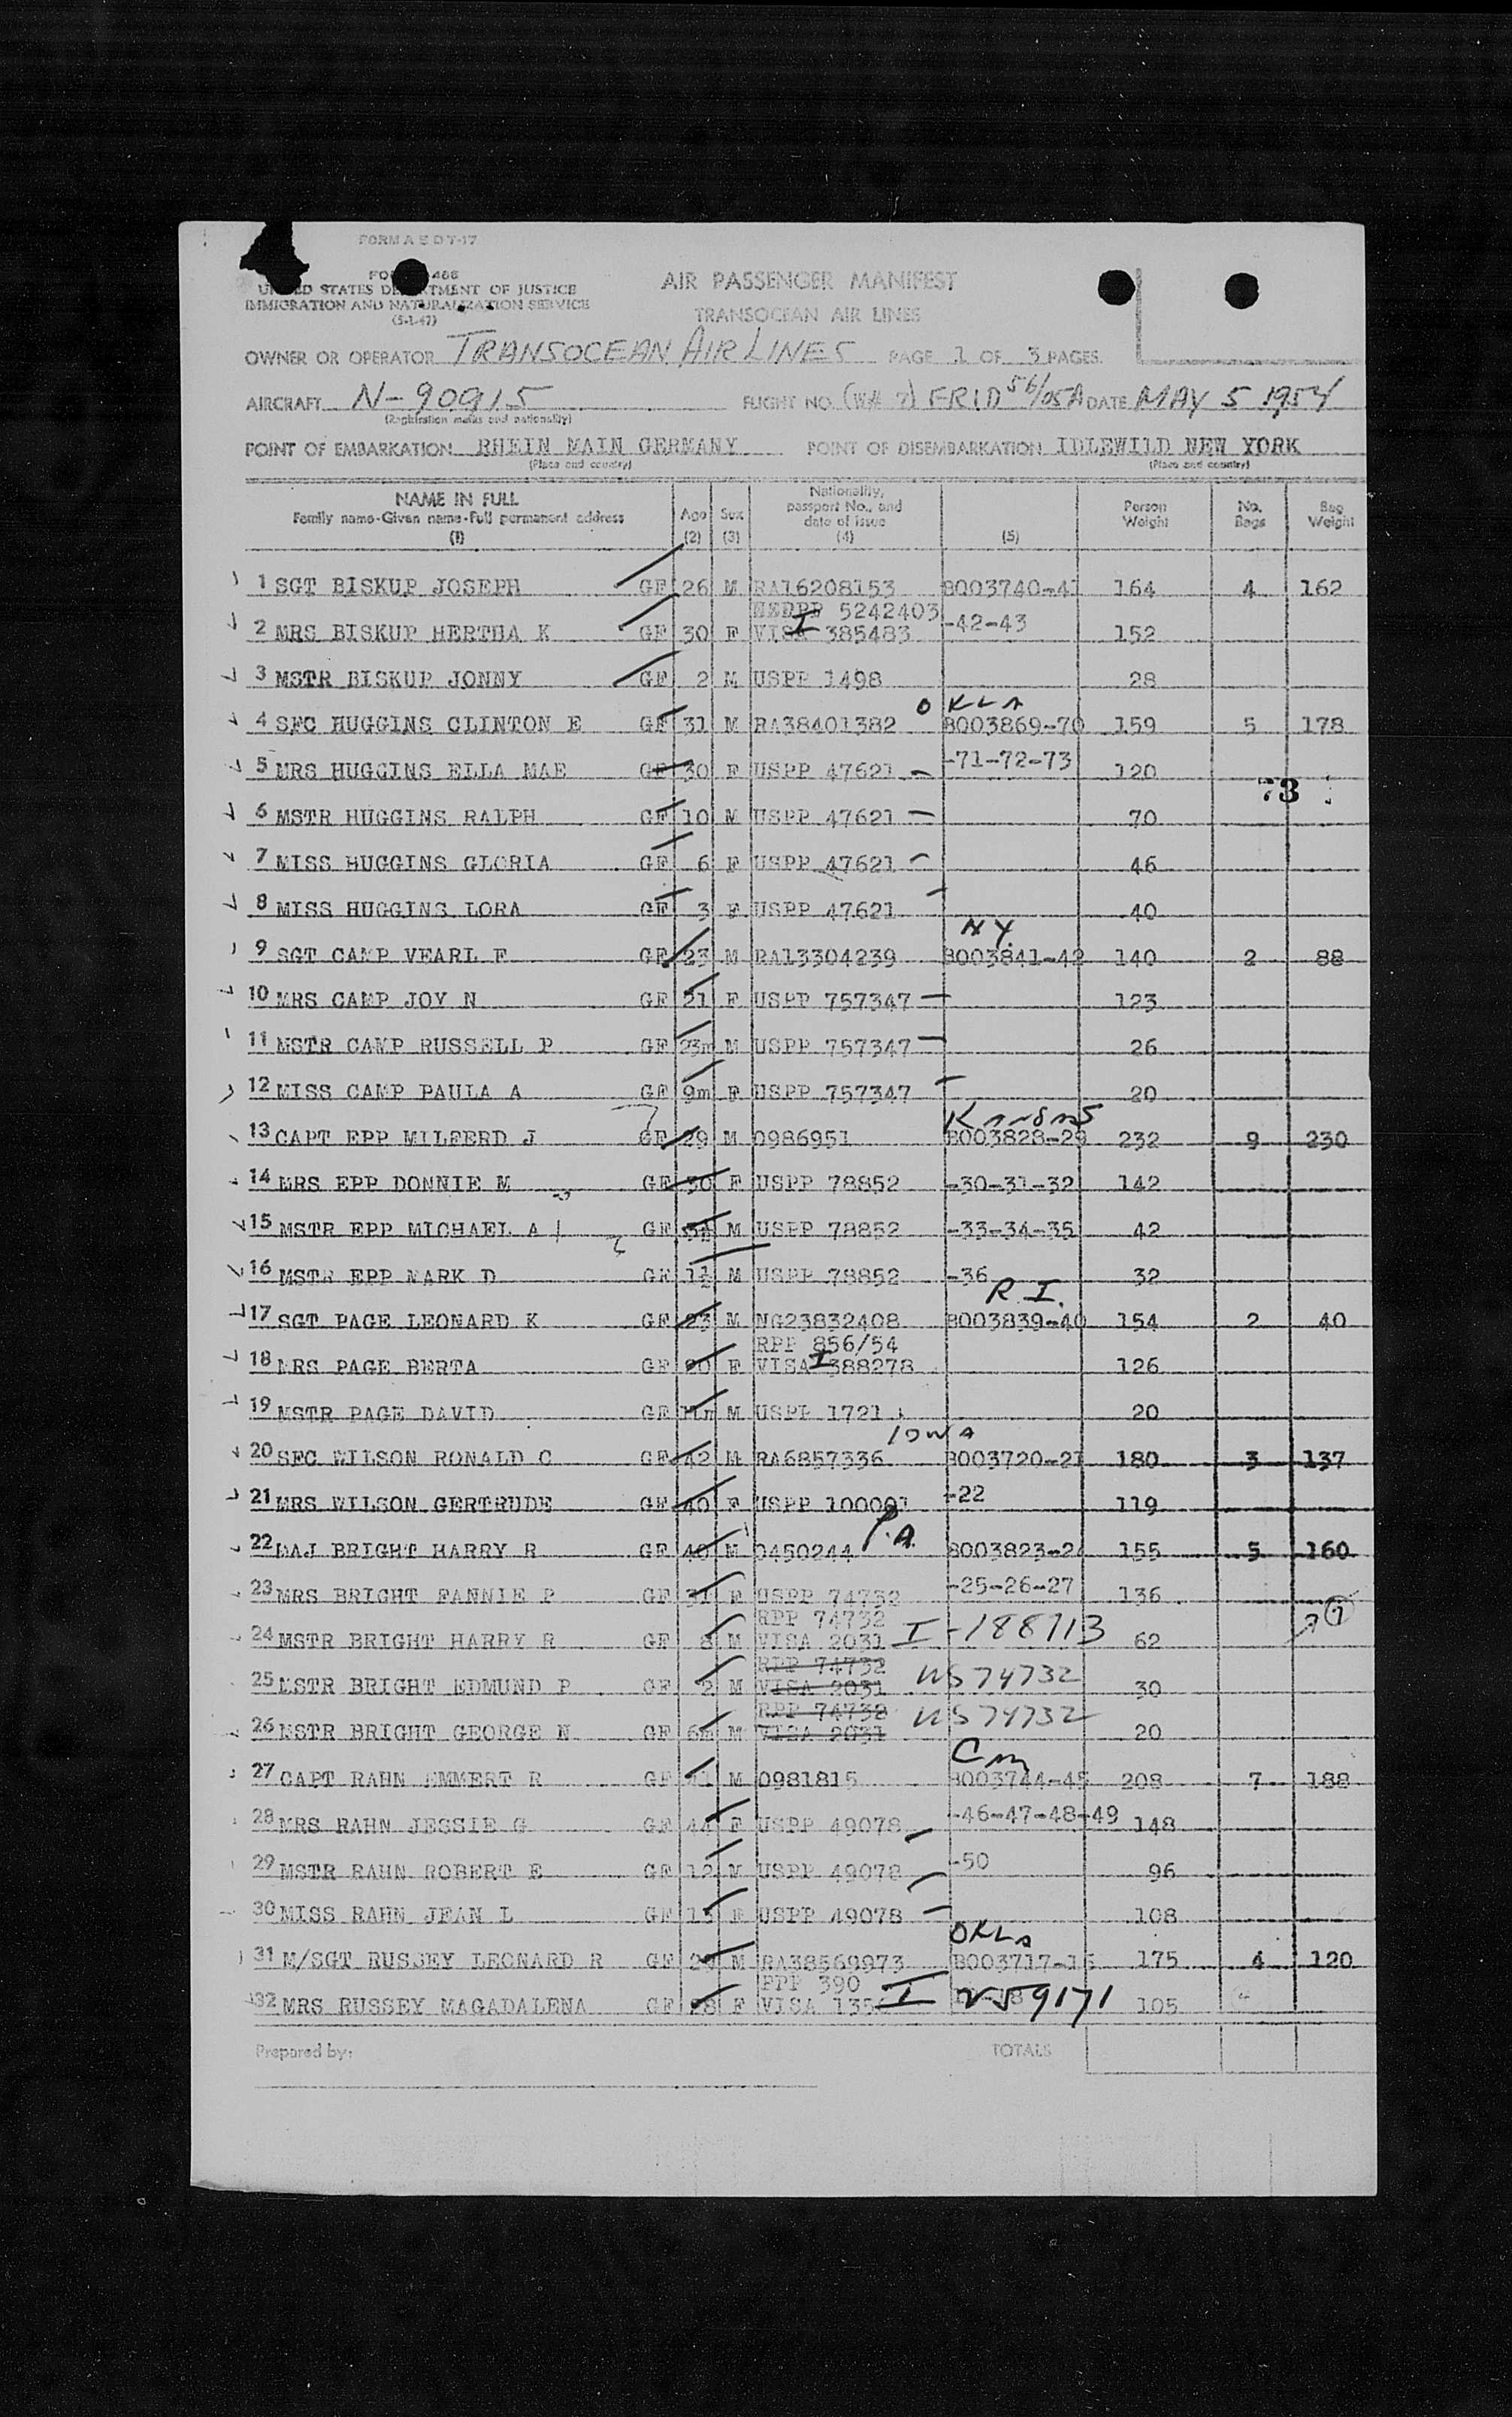 FORM A E D T-17
UNITED STATES DEPARTMENT OF JUSTICE
IMMIGRATION AND NATURALIZATION SERVICE
(5-1-47)
AIR PASSENGER MANIFEST
TRANSOCEAN AIR LINES
OWNER OR OPERATOR TRANSOCEAN AIR LINES PAGE 1 OF 3 PAGES
AIRCRAFT N-90915 FLIGHT NO. FRID 56/05A DATE MAY 5 1954
(Registration marks and nationality)
POINT OF EMBARKATION RHEIN MAIN GERMANY POINT OF DISEMBARKATION IDLEWILD NEW YORK
(Place and country) (Place and country)
NAME IN FULL Family name-Given name-Full permanent address (1) Age (2) Sex (3) Nationality, passport No., and date of issue (4) (5) Person Weight No. Bags Bag Weight
1 SGT BISKUP JOSEPH GF 26 M RA16208153 B003740-41 164 4 162
5242403
2 MRS BISKUP HERTHA K GF 30 F VISA I 385483 -42-43 152
3 MSTR BISKUP JONNY GF 2 M USPP 1498 28
OKLA
4 SFC HUGGINS CLINTON E GF 31 M RA38401382 B003869-70 159 5 178
5 MRS HUGGINS ELLA MAE GF 30 F USPP 47621 -71-72-73 120
73
6 MSTR HUGGINS RALPH GF 10 M USPP 47621 70
7 MISS HUGGINS GLORIA GF 6 F USPP 47621 46
8 MISS HUGGINS LORA GF 3 F USPP 47621 40
NY.
9 SGT CAMP VEARL F GF 23 M RA13304239 B003841-42 140 2 88
10 MRS CAMP JOY N GF 21 F USPP 757347 123
11 MSTR CAMP RUSSELL P GF 23m M USPP 757347 26
12 MISS CAMP PAULA A GF 9m F USPP 757347 20
Kansas
13 CAPT EPP MILFERD J GF 29 M 0986951 B003828-29 232 9 230
14 MRS EPP DONNIE M GF 30 F USPP 78852 -30-31-32 142
15 MSTR EPP MICHAEL A GF 3½ M USPP 78852 -33-34-35 42
16 MSTR EPP MARK D GF 1½ M USPP 78852 -36 32
R.I.
17 SGT PAGE LEONARD K GF 23 M NG23832408 B003839-40 154 2 40
RPP 856/54
18 MRS PAGE BERTA GF 20 F VISA I 388278 126
19 MSTR PAGE DAVID GF M USPP 1721 20
IOWA
20 SFC WILSON RONALD C GF 42 M RA6857336 B003720-21 180 3 137
21 MRS WILSON GERTRUDE GF 40 F USPP 100001 -22 119
P.A.
22 MAJ BRIGHT HARRY R GF 40 M 0450244 B003823-24 155 5 160
23 MRS BRIGHT FANNIE P GF 31 F USPP 74732 -25-26-27 136
RPP 74732
24 MSTR BRIGHT HARRY R GF 8 M VISA 2031 I-188713 62
RPP 74732
25 MSTR BRIGHT EDMUND P GF 2 M VISA 2031 US 74732 30
RPP 74732
26 MSTR BRIGHT GEORGE N GF 6m M VISA 2031 US 74732 20
27 CAPT RAHN EMMERT R GF 41 M 0981815 B003744-45 208 7 188
28 MRS RAHN JESSIE G GF 44 F USPP 49078 -46-47-48-49 148
29 MSTR RAHN ROBERT E GF 12 M USPP 49078 -50 96
30 MISS RAHN JEAN L GF 13 F USPP 49078 108
OKLA
31 M/SGT RUSSEY LEONARD R GF M RA38569973 175 4 120
PPP 390
32 MRS RUSSEY MAGADALENA GF 28 F VISA I 259171 105
Prepared by: TOTALS